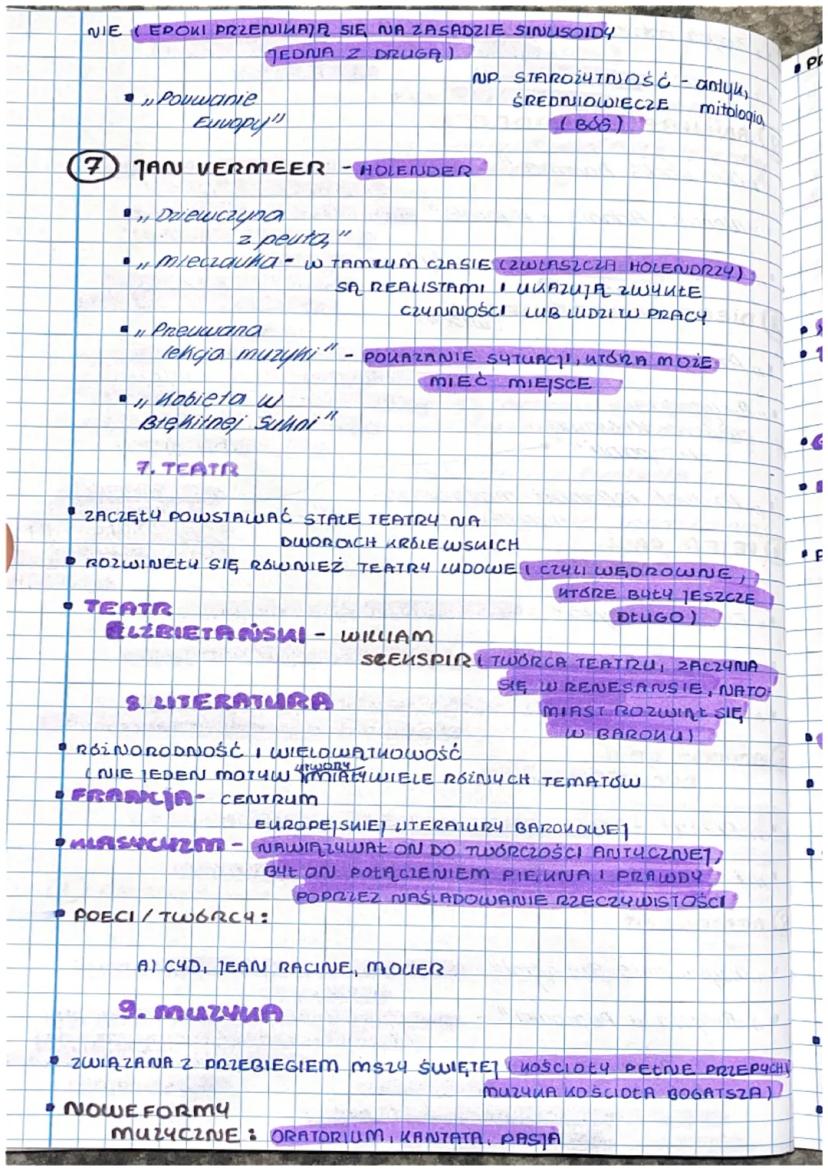 NIE (EPOKI PRZENIKAJĄ SIĘ NA ZASADZIE SINUSOIDY
JEDNA Z DRUGĄ)
NP. STAROŻYTNOŚĆ - antyk,
ŚREDNIOWIECZE mitologia
(BÓG)
• „Porwanie
Europy"
7 JAN VERMEER - HOLENDER
• „Dziewczyna
z perłą"
• „Mleczarka - W TAMTYM CZASIE (ZWŁASZCZA HOLENDRZY)
SĄ REALISTAMI I UKAZUJĄ ZWYKŁE
CZYNNOŚCI LUB LUDZI W PRACY
• „Przerwana
lekcja muzyki" - POKAZANIE SYTUACJI, KTÓRA MOŻE
MIEĆ MIEJSCE
• „Kobieta w
Błękitnej Sukni"
7. TEATR
• ZACZĘŁY POWSTAWAĆ STAŁE TEATRY NA
DWORACH KRÓLEWSKICH
• ROZWINĘŁY SIĘ RÓWNIEŻ TEATRY LUDOWE (CZYLI WĘDROWNE,
KTÓRE BYŁY JESZCZE
DŁUGO)
• TEATR
ELŻBIETAŃSKI - WILLIAM
SZEKSPIR (TWÓRCA TEATRU, ZACZYNA
SIĘ W RENESANSIE, NATO-
MIAST ROZWIĄŁ SIĘ
W BAROKU)
8. LITERATURA
• RÓŻNORODNOŚĆ I WIELOWĄTKOWOŚĆ
(NIE JEDEN MOTYW utwory MIAŁY WIELE RÓŻNYCH TEMATÓW
• FRANCJA - CENTRUM
EUROPEJSKIEJ LITERATURY BAROKOWEJ
• KLASYCYZM - NAWIĄZYWAŁ ON DO TWÓRCZOŚCI ANTYCZNEJ,
BYŁ ON POŁĄCZENIEM PIĘKNA I PRAWDY
POPRZEZ NAŚLADOWANIE RZECZYWISTOŚCI
• POECI / TWÓRCY:
A) CYD, JEAN RACINE, MOLIER
9. MUZYKA
• ZWIĄZANA Z PRZEBIEGIEM MSZY ŚWIĘTEJ (KOŚCIOŁY PEŁNE PRZEPYCHU
MUZYKA KOŚCIOŁA BOGATSZA)
• NOWE FORMY
MUZYCZNE: ORATORIUM, KANTATA, PASJA